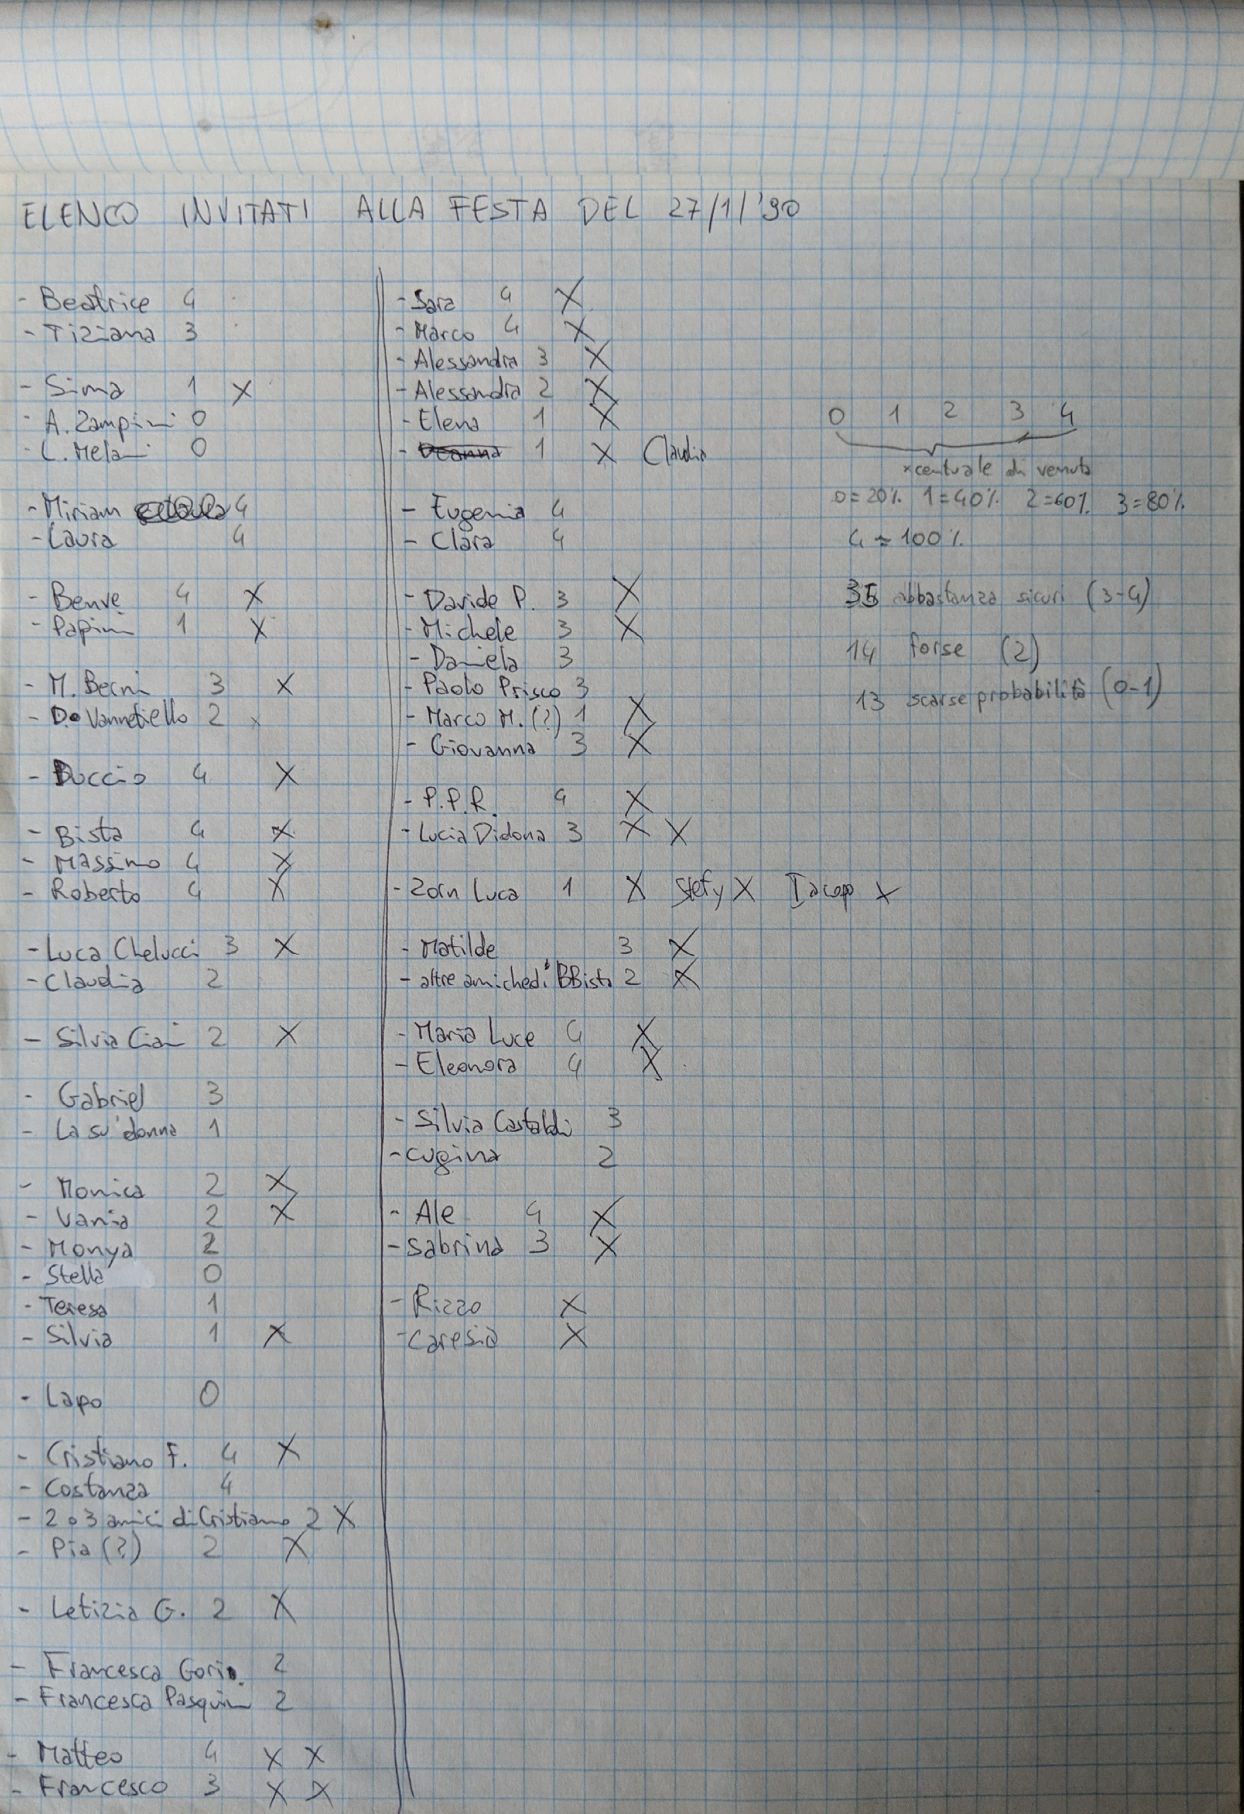 ELENCO INVITATI ALLA FESTA DEL 27/1/'90
- Beatrice 4
- Tiziana 3
- Sima 1 X
- A. Zampini 0
- C. Melani 0
- Miriam 4
- Laura 4
- Benve 4 X
- Papini 1 X
- M. Berni 3 X
- D. Vannetiello 2 x
- Duccio 4 X
- Bista 4 X
- Massimo 4 X
- Roberto 4 X
- Luca Chelucci 3 X
- Claudia 2
- Silvia Ciai 2 X
- Gabriel 3
- La su' donna 1
- Monica 2 X
- Vania 2 X
- Monya 2
- Stella 0
- Teresa 1
- Silvia 1 X
- Lapo 0
- Cristiano F. 4 X
- Costanza 4
- 2 o 3 amici di Cristiano 2 X
- Pia (?) 2 X
- Letizia G. 2 X
- Francesca Gori 2
- Francesca Pasquini 2
- Matteo 4 X X
- Francesco 3 X X
- Sara 4 X
- Marco 4 X
- Alessandra 3 X
- Alessandra 2 X
- Elena 1 X
- Deanna 1 X Claudia
- Eugenia 4
- Clara 4
- Davide P. 3 X
- Michele 3 X
- Daniela 3
- Paolo Prisco 3
- Marco M. (?) 1 X
- Giovanna 3 X
- P.P.R. 4 X
- Lucia Didona 3 X X
- Zorn Luca 1 X Stefy X Iacopo X
- Matilde 3 X
- altre amiche di BBista 2 X
- Maria Luce 4 X
- Eleonora 4 X
- Silvia Castaldi 3
- cugina 2
- Ale 4 X
- Sabrina 3 X
- Rizzo X
- Caresia X
0 1 2 3 4
xcentuale di venuta
0=20% 1=40% 2=60% 3=80%
4=100%
35 abbastanza sicuri (3-4)
14 forse (2)
13 scarse probabilità (0-1)